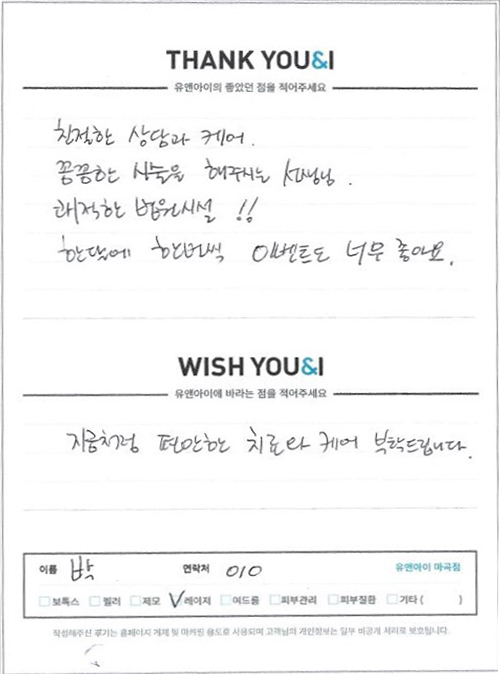 THANK YOU&I
유앤아이의 좋았던 점을 적어주세요
친절한 상담과 케어.
꼼꼼한 시술을 해주시는 선생님.
쾌적한 병원시설 !!
한달에 한번씩 이벤트도 너무 좋아요.
WISH YOU&I
유앤아이에 바라는 점을 적어주세요
지금처럼 편안한 치료와 케어 부탁드립니다.
이름 박 연락처 010 유앤아이 마곡점
보톡스 필러 제모 레이저 여드름 피부관리 피부질환 기타 ( )
작성해주신 후기는 홈페이지 게재 및 마케팅 용도로 사용되며 고객님의 개인정보는 일부 비공개 처리로 보호됩니다.